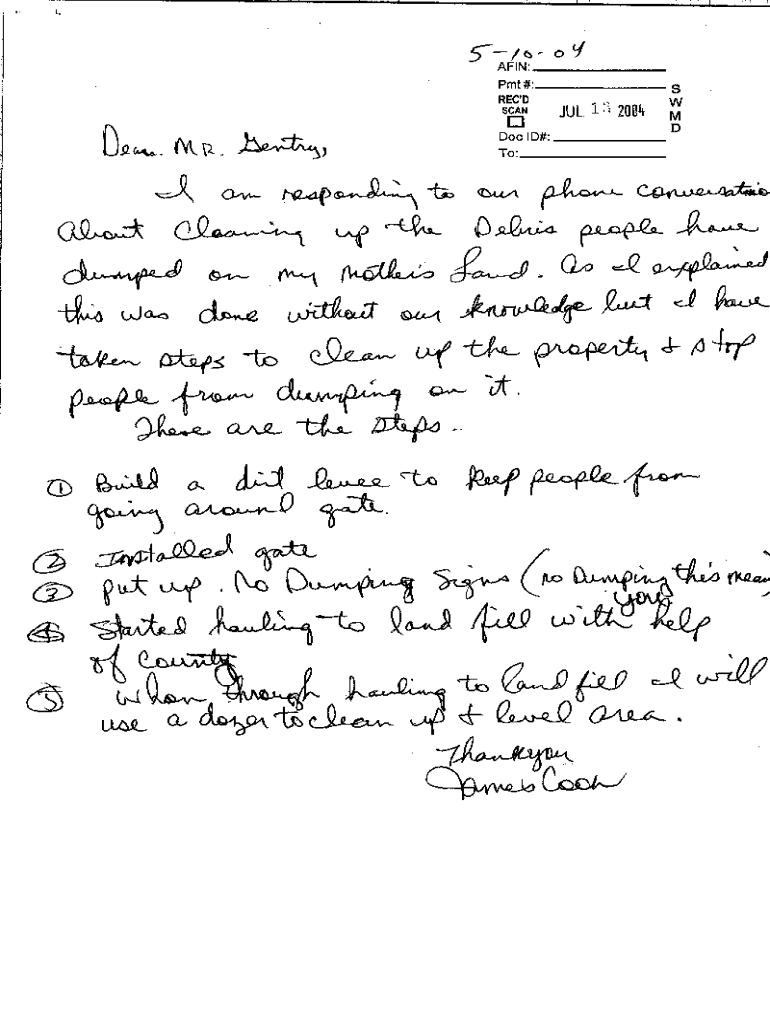 5-10-04
AFIN:
Pmt #:
REC'D
SCAN
JUL 13 2004
Doc ID#:
To:
SWMD
Dear Mr. Gentry,
I am responding to our phone conversatio
About Cleaning up the Debris people have
dumped on my Mother's Land. As I explained
this was done without our knowledge but I have
taken steps to clean up the property & stop
people from dumping on it.
These are the Steps..
① Build a dirt levee to keep people from
going around gate.
② Installed gate
③ put up . No Dumping Signs (no Dumping this mean
you)
④ Started hauling to land fill with help
of County
⑤ whan through hauling to land fill I will
use a dozer to clean up & level area.
Thank you
James Cook